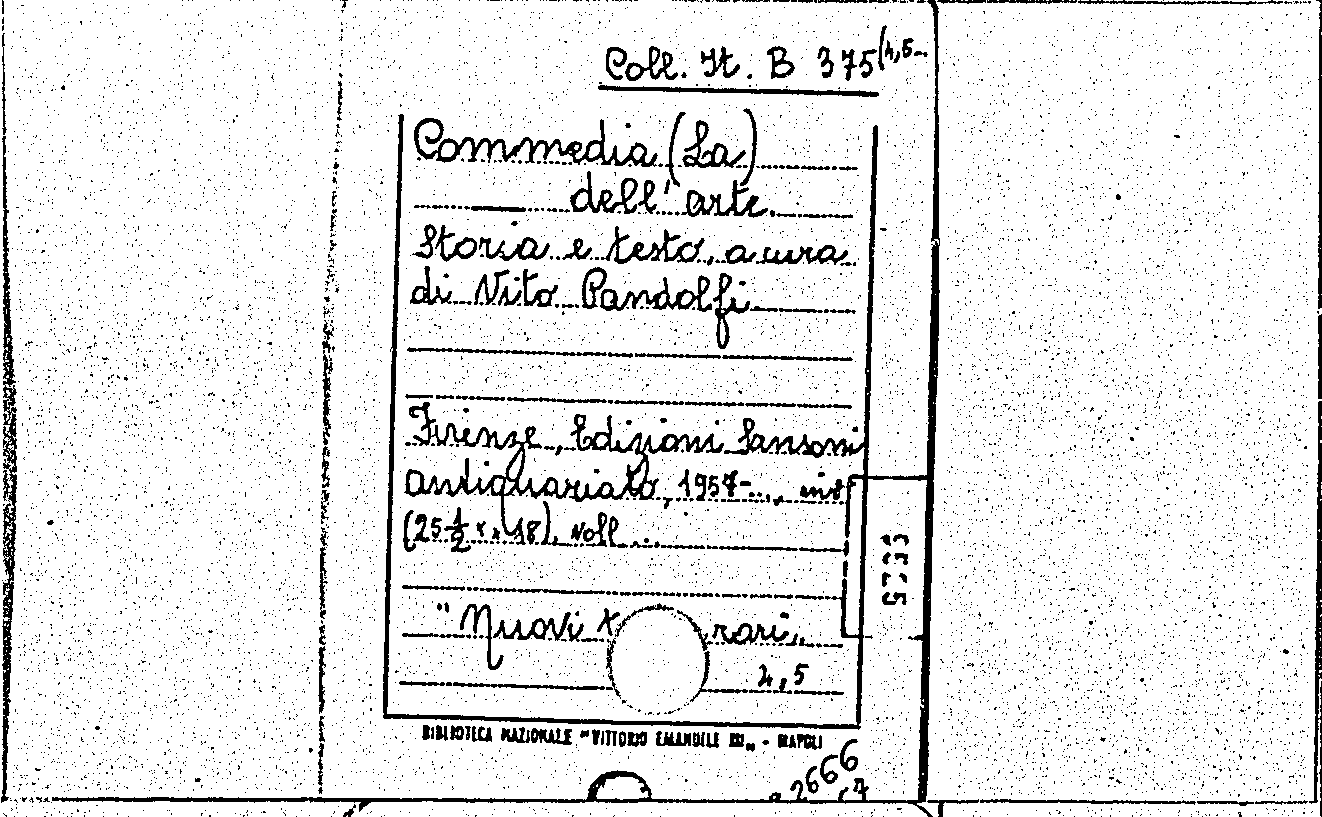 Coll. It. B 375(4,5-..
Commedia (La)
dell'arte.
Storia e testo, a cura
di Vito Pandolfi
Firenze, Edizioni Sansoni
antiquariato, 1957-..., in 8°
(25 1/2 x 18), voll...
"Nuovi t rari"
4,5
BIBLIOTECA NAZIONALE "VITTORIO EMANUELE III" - NAPOLI
2666